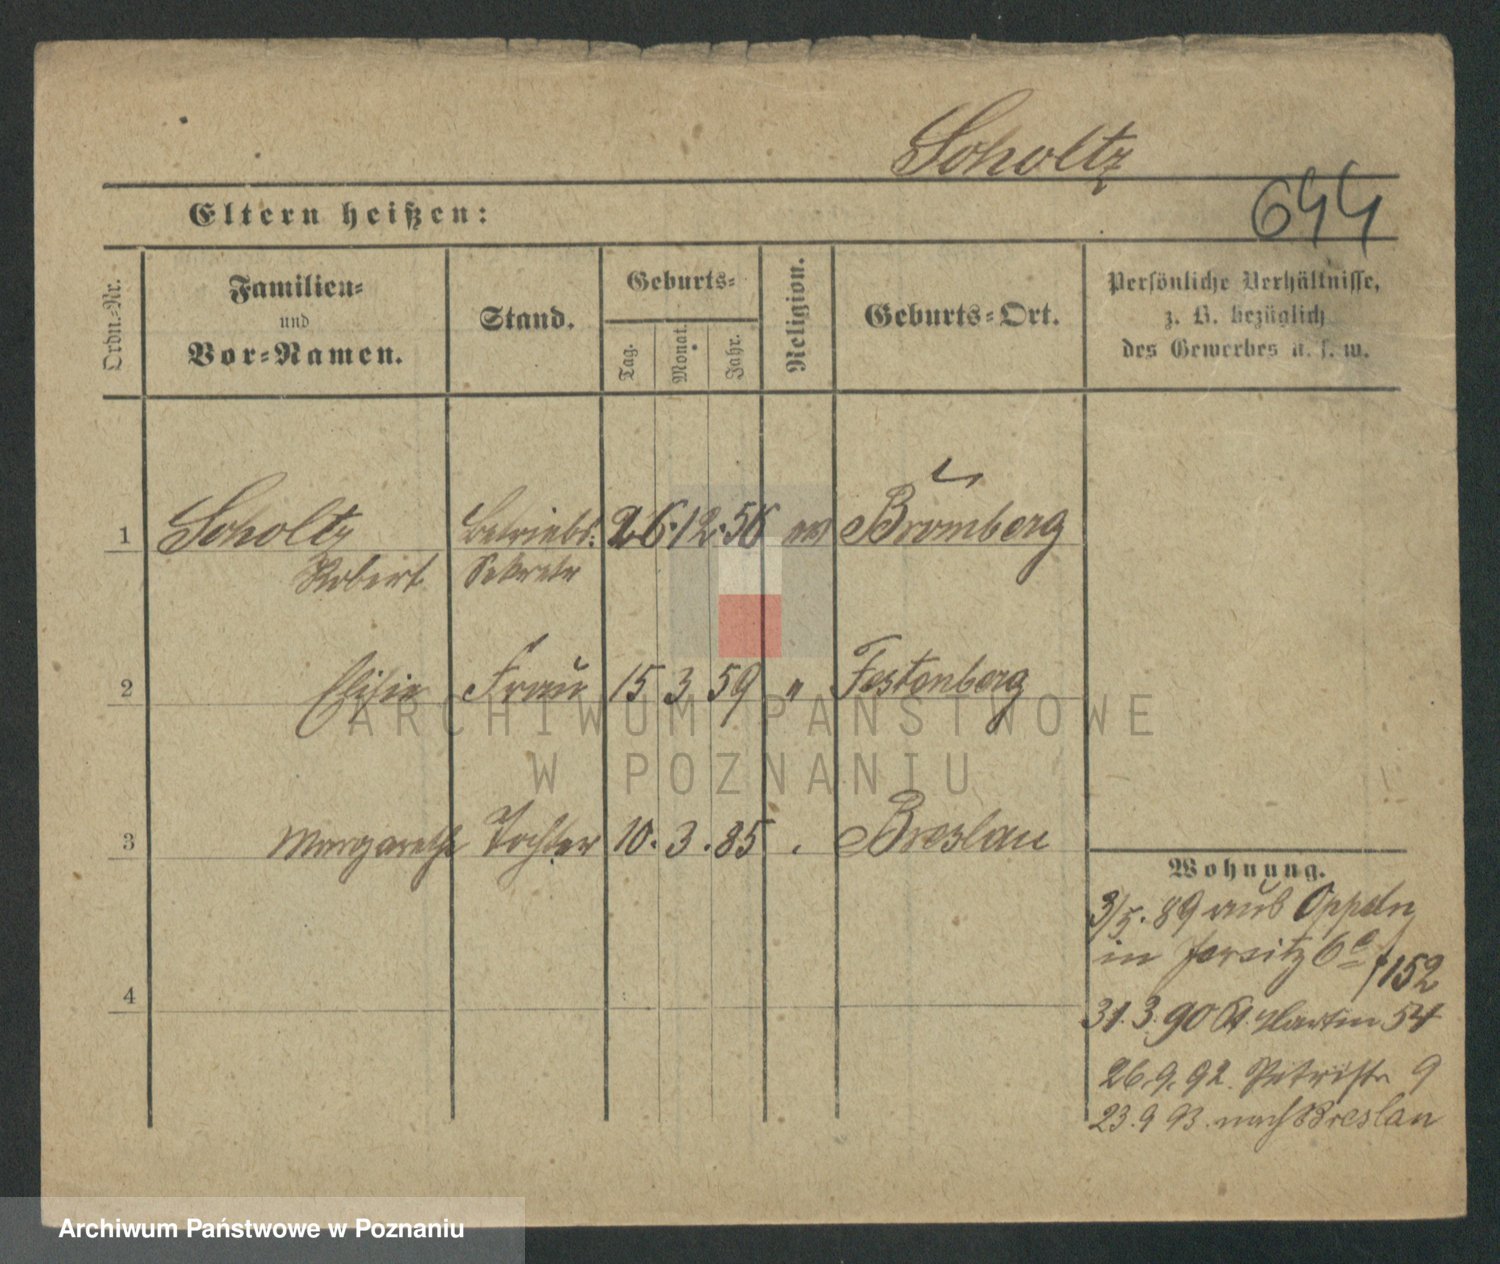 Scholtz
644
Eltern heißen:
Ordn.-Nr.
Familien-
und
Vor-Namen.
Stand.
Geburts-
Tag.
Monat.
Jahr.
Religion.
Geburts-Ort.
Persönliche Verhältnisse,
z. B. bezüglich
des Gewerbes u. s. w.
1 Scholtz Betriebs: 26. 12. 56 ev Bromberg
Robert Sekretr
2 Frau 15 3 59 " Festenberg
3 Margarethe Tochter 10. 3. 85 . Breslau
4
Wohnung.
3/5. 89 aus Oppeln
in Jersitz 6c /152
31. 3. 90 St. Martin 54
26. 9. 92. Petristr 9
23. 9 93. nach Breslau
ARCHIWUM PAŃSTWOWE
W POZNANIU
Archiwum Państwowe w Poznaniu